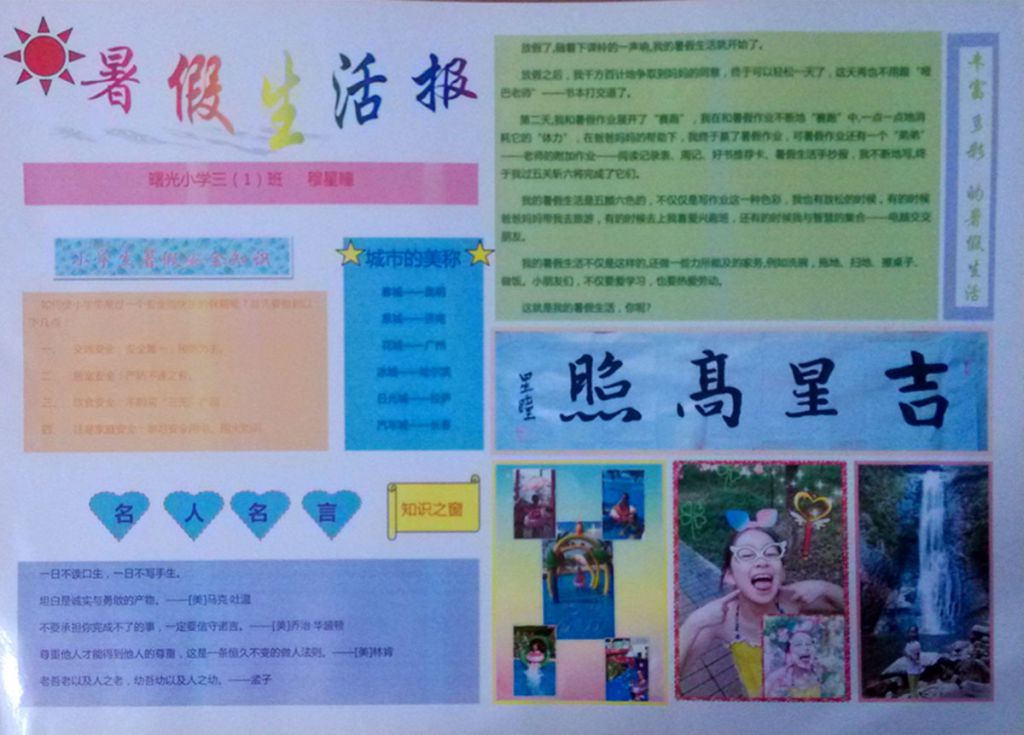 暑假生活报
曙光小学三（1）班 穆星曈
小学生暑假安全知识
如何使小学生度过一个安全而快乐的假期呢？首先要做到以
下几点：
一、 交通安全：安全第一，预防为主。
二、 居室安全：严防不速之客。
三、 饮食安全：不购买“三无”产品
四、 注意家庭安全：学习安全用电、用火知识
城市的美称
春城——昆明
泉城——济南
花城——广州
冰城——哈尔滨
日光城——拉萨
汽车城——长春
名人名言
知识之窗
一日不读口生，一日不写手生。
坦白是诚实与勇敢的产物。——[美]马克·吐温
不要承担你完成不了的事，一定要信守诺言。——[美]乔治·华盛顿
尊重他人才能得到他人的尊重，这是一条恒久不变的做人法则。——[美]林肯
老吾老以及人之老，幼吾幼以及人之幼。——孟子
放假了,随着下课铃的一声响,我的暑假生活就开始了。
放假之后，我千方百计地争取到妈妈的同意，终于可以轻松一天了，这天再也不用跟“哑
巴老师”——书本打交道了。
第二天,我和暑假作业展开了“赛跑”，我在和暑假作业不断地“赛跑”中,一点一点地消
耗它的“体力”，在爸爸妈妈的帮助下，我终于赢了暑假作业，可暑假作业还有一个“弟弟”
——老师的附加作业——阅读记录表、周记、好书推荐卡、暑假生活手抄报，我不断地写,终
于我过五关斩六将完成了它们。
我的暑假生活是五颜六色的，不仅仅是写作业这一种色彩，我也有放松的时候，有的时候
爸爸妈妈带我去旅游，有的时候去上我喜爱兴趣班，还有的时候我与智慧的集合——电脑交交
朋友。
我的暑假生活不仅是这样的,还做一些力所能及的家务,例如洗碗，拖地、扫地、擦桌子、
做饭。小朋友们，不仅要爱学习，也要热爱劳动。
这就是我的暑假生活，你呢?
丰富多彩的暑假生活
吉星高照
星曈